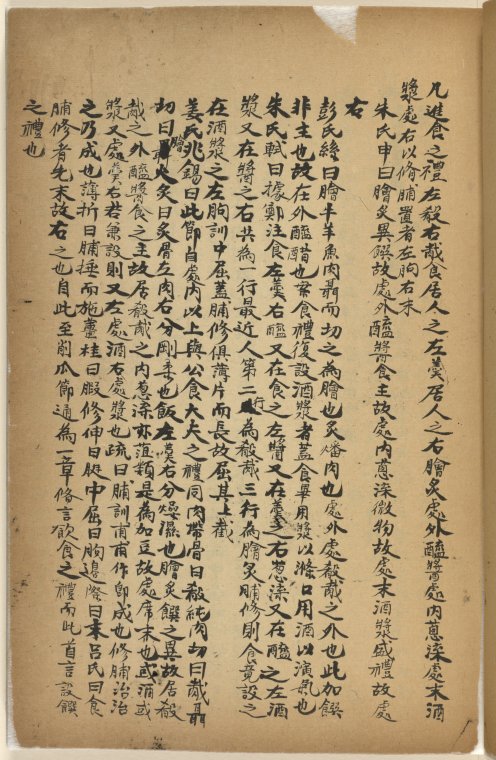 凡進食之禮左殽右胾食居人之左羹居人之右膾炙處外醯醬處內蔥渫處末酒
漿處右以脩脯置者左朐右末
朱氏申曰膾炙異饌故處外醯醬食主故處內蔥渫微物故處末酒漿盛禮故處
右
彭氏絲曰膾牛羊魚肉聶而切之為膾也炙燔肉也處外處殽胾之外也此加饌
非主也故在外醯醋也案食禮復設酒漿者蓋食畢用漿以滌口用酒以演氣也
朱氏軾曰據鄭注食左羹右醯又在食之左醬又在羹之右蔥渫又在醯之左酒
漿又在醬之右共為一行最近人第二行為殽胾三行為膾炙脯修則食竟設之
在酒漿之左朐訓中屈蓋脯修俱薄片而長故屈其上截
姜氏兆錫曰此節自處內以上與公食大夫之禮同肉帶骨曰殽純肉切曰胾聶
切曰膾火炙曰炙骨左肉右分剛柔也飯左羹右分燥濕也膾炙饌之異故居殽
胾之外醯醬食之主故居殽胾之內蔥渫亦菹類是為加豆故處席末也或酒或
漿又處羹右若兼設則又左處酒右處漿也疏曰脯訓甫甫作即成也修脯治治
之乃成也薄折曰脯捶而施薑桂曰腶修伸曰脡中屈曰朐邊際曰末呂氏曰食
脯修者先末故右之也自此至削瓜節通為一章條言飲食之禮而此首言設饌
之禮也